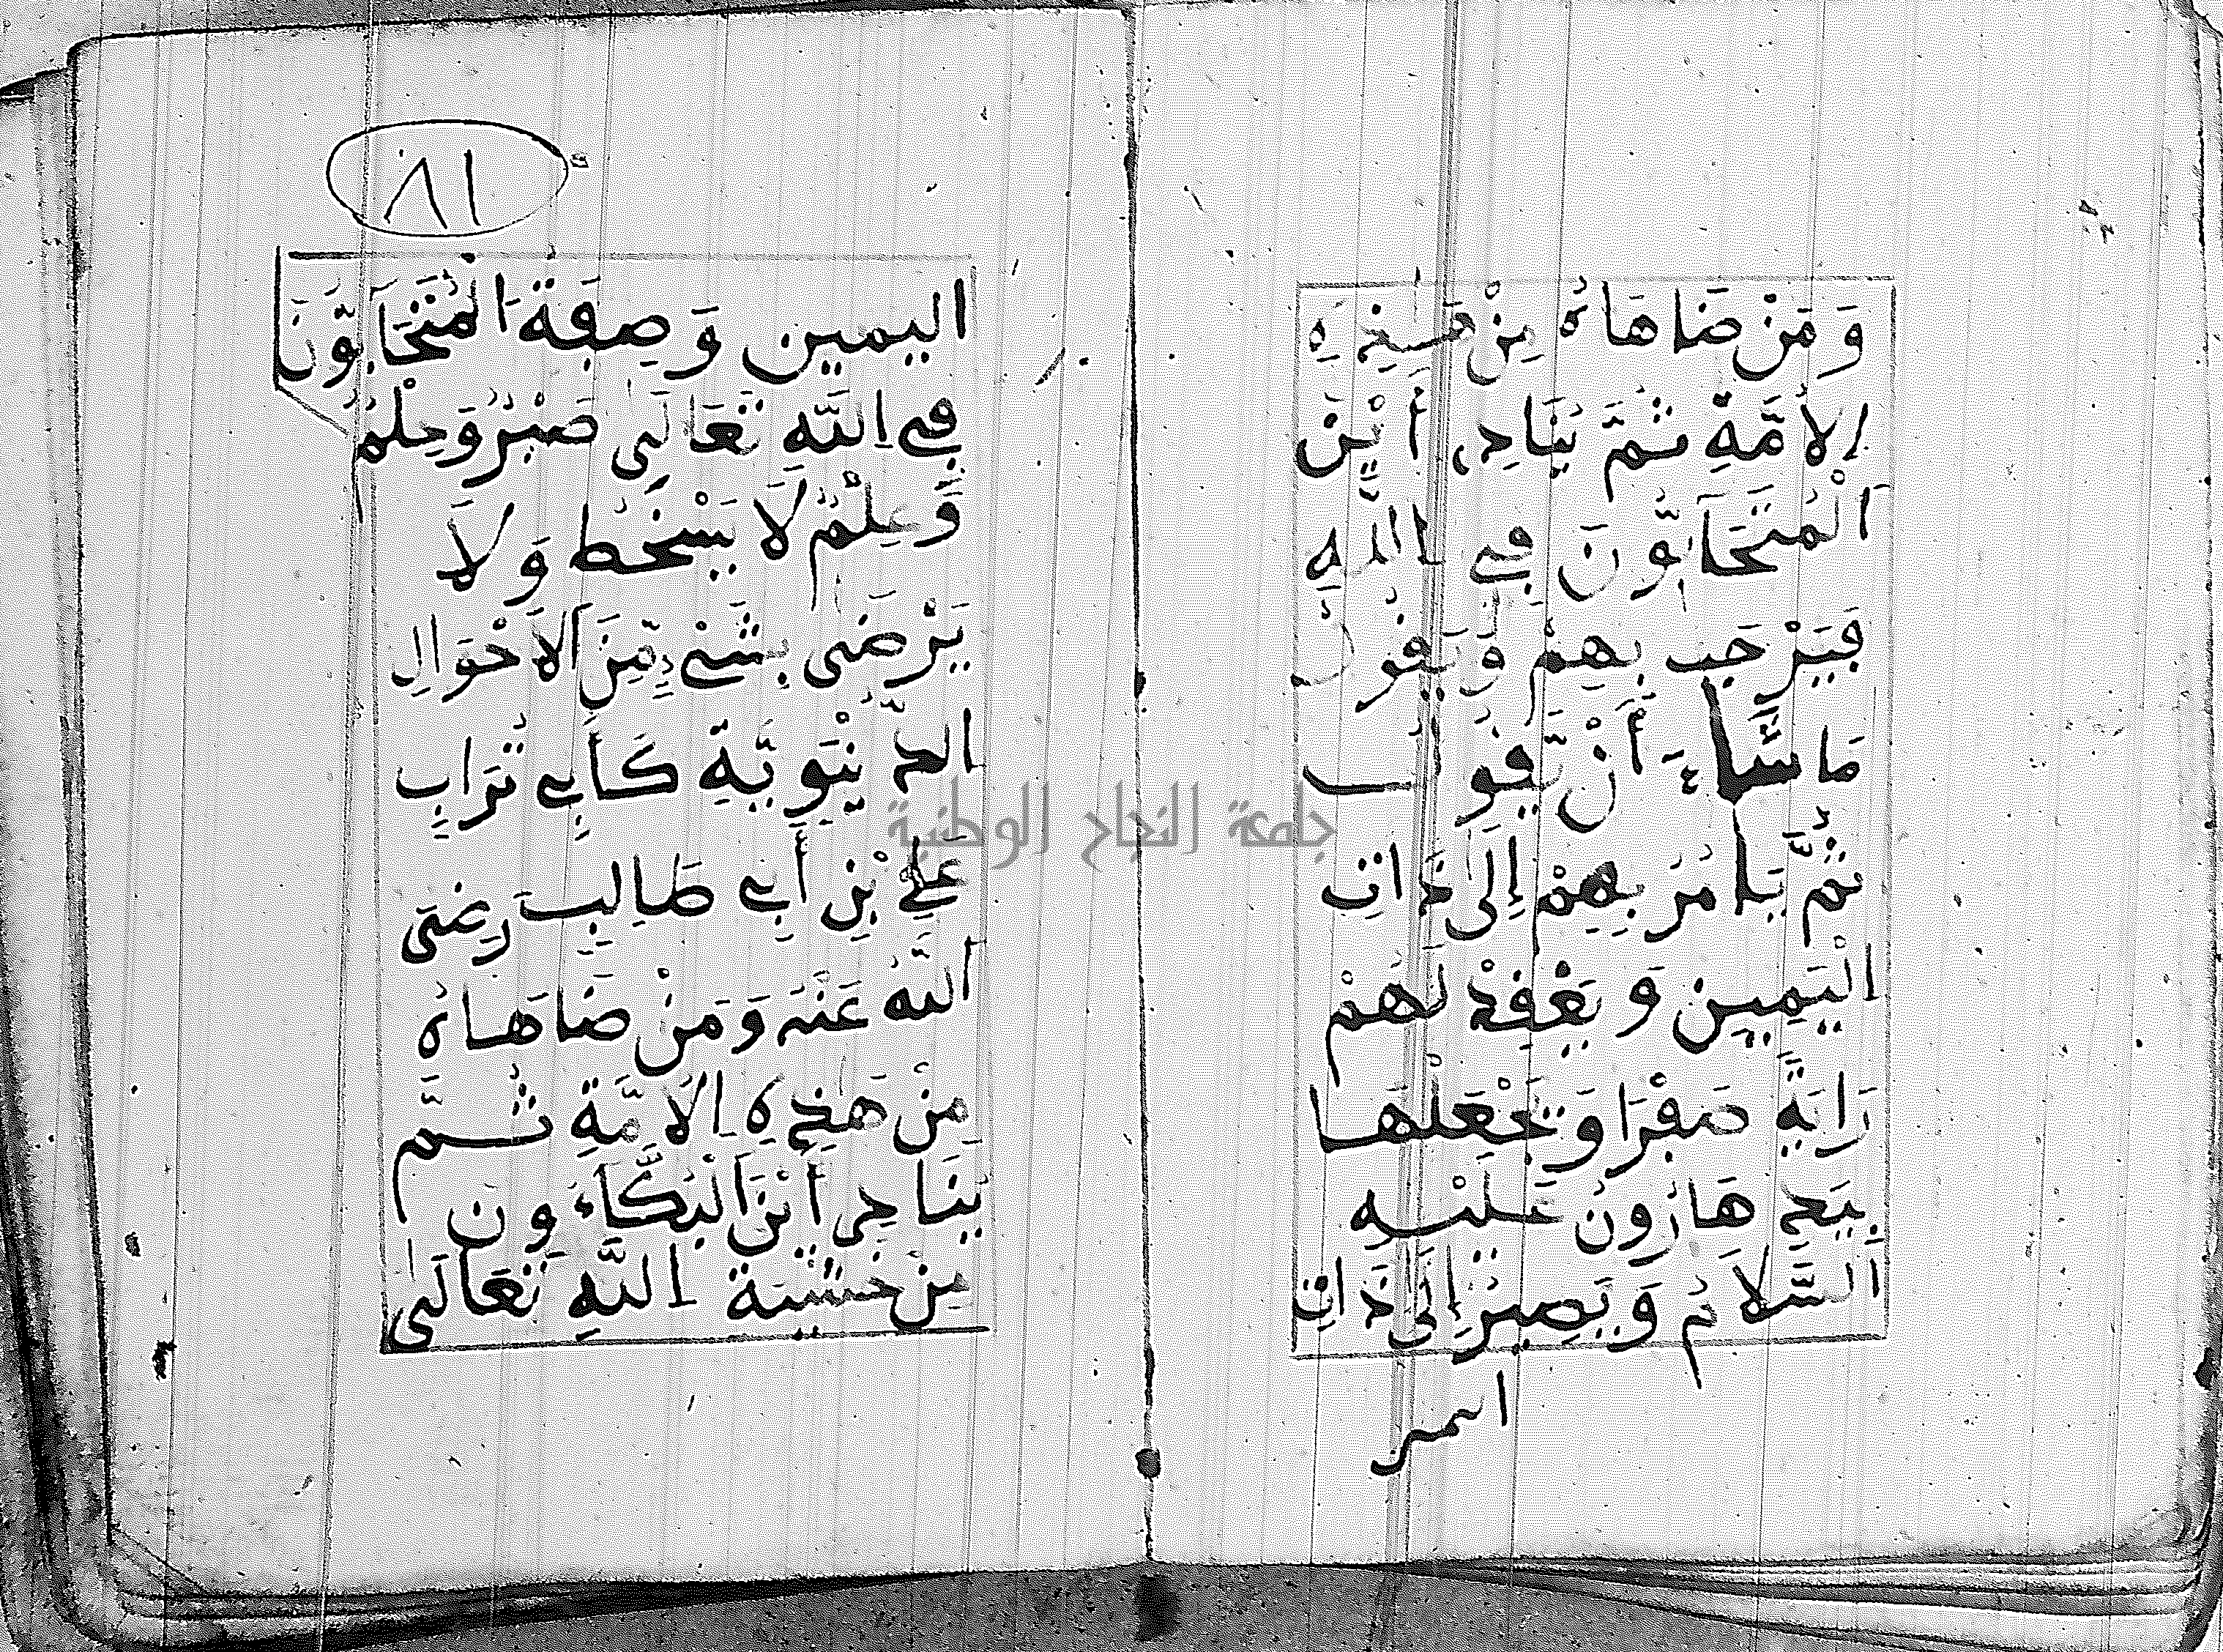 وَمَنْ ضَاهَاهُ مِنْ هَذِهِ
الأُمَّةِ ثُمَّ يُنَادِى أَيْنَ
الْمُتَحَآبُّونَ فِى اللَّهِ
فَيُرَحِّبُ بِهِمْ وَيَقُولُ
مَاشَاءَ أَنْ يَّقُولَ
ثُمَّ يَامُرُ بِهِمْ إِلَى ذَاتِ
الْيَمِينِ وَيَعْقِدُ لَهُمْ
رَايَةً صَفْرَا وَيَجْعَلْهَا
بِيَدِ هَارُونَ عَلَيْهِ
السَّلاَمُ وَيَصِيرُ إِلَى ذَاتِ
اليمين
٨١
اليمين وَصِفَةُ الْمُتَحَآبُّونَ
فِى اللَّهِ تَعَالَى صَبْرٌ وَحِلْمٌ
وَّعِلْمٌ لاَ يَسْخَطُ وَلاَ
يَرْضَى بِشَىْءٍ مِّنَ الاَحْوَالِ
الدُّنْيَوِيَّةِ كَأَبِى تُرَابٍ
عَلِى بْنِ أَبِى طَالِبٍ رَضِىَ
اللَّهُ عَنْهُ وَمَنْ ضَاهَاهُ
مِنْ هَذِهِ الأُمَّةِ ثُمَّ
يُنَادِى أَيْنَ الْبَكَّاءُونَ
مِنْ خَشْيَةِ اللَّهِ تَعَالَى
جامعة النجاح الوطنية